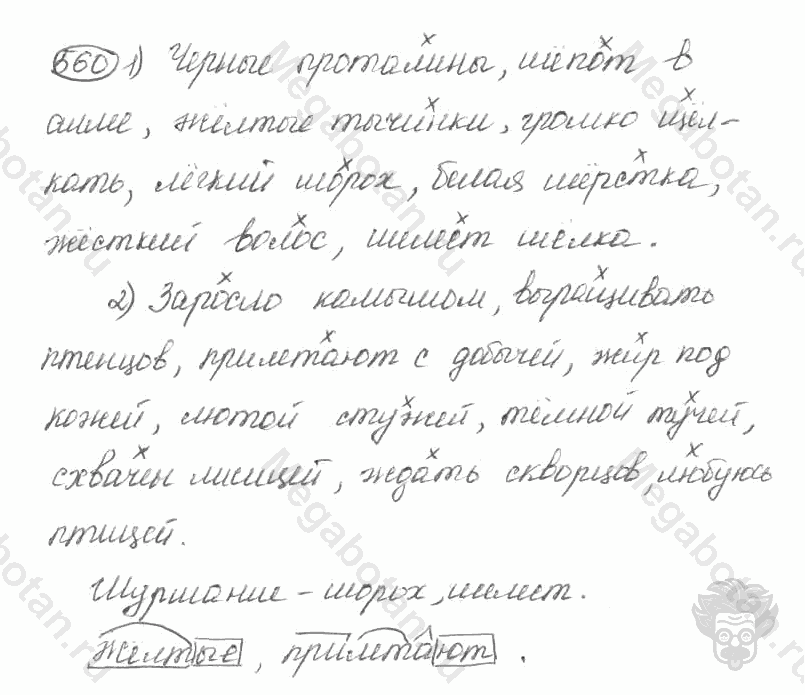 560 1) Черные проталины, шёпот в
аллее, жёлтые тычинки, громко щёл-
кать, лёгкий шорох, белая шёрстка,
жёсткий волос, шелест шёлка.
2) Заросло камышом, выращивать
птенцов, прилетают с добычей, жир под
кожей, лютой стужей, тёмной тучей,
схвачен лисицей, ждать скворцов, любуюсь
птицей.
Шуршание – шорох, шелест.
жёлтые, прилетают.
Megabotan.ru